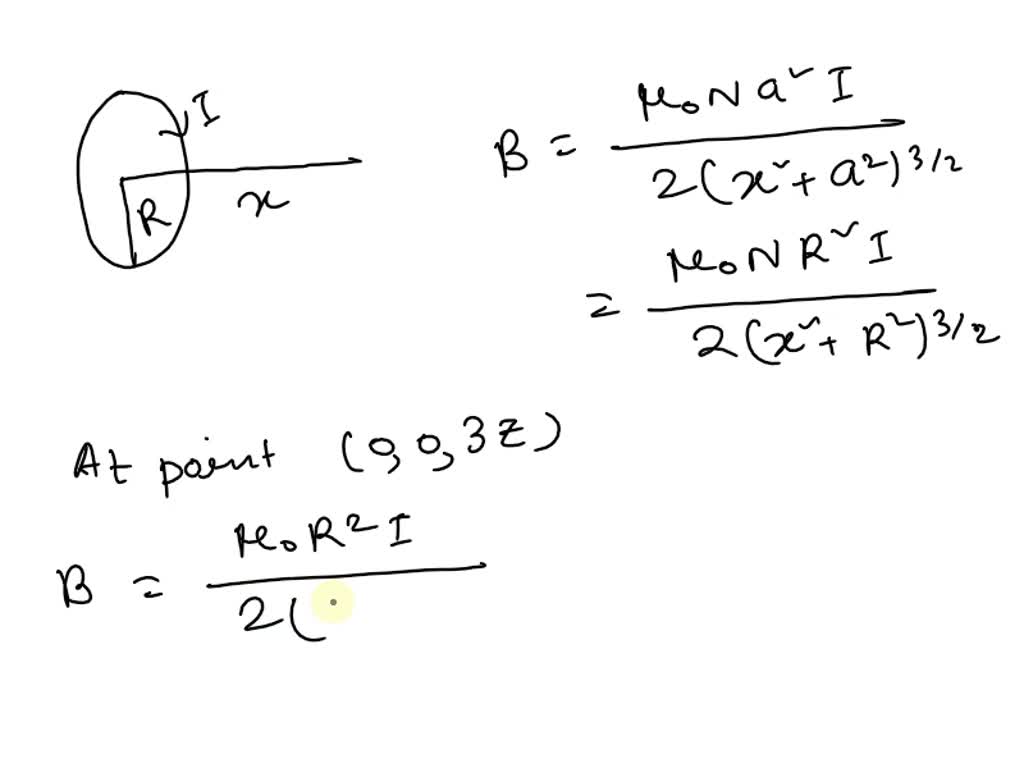 I
R
x
B = μ₀ N a² I / 2(x² + a²)^3/2
= μ₀ N R² I / 2(x² + R²)^3/2
At point (0, 0, 3z)
B = μ₀ R² I / 2(